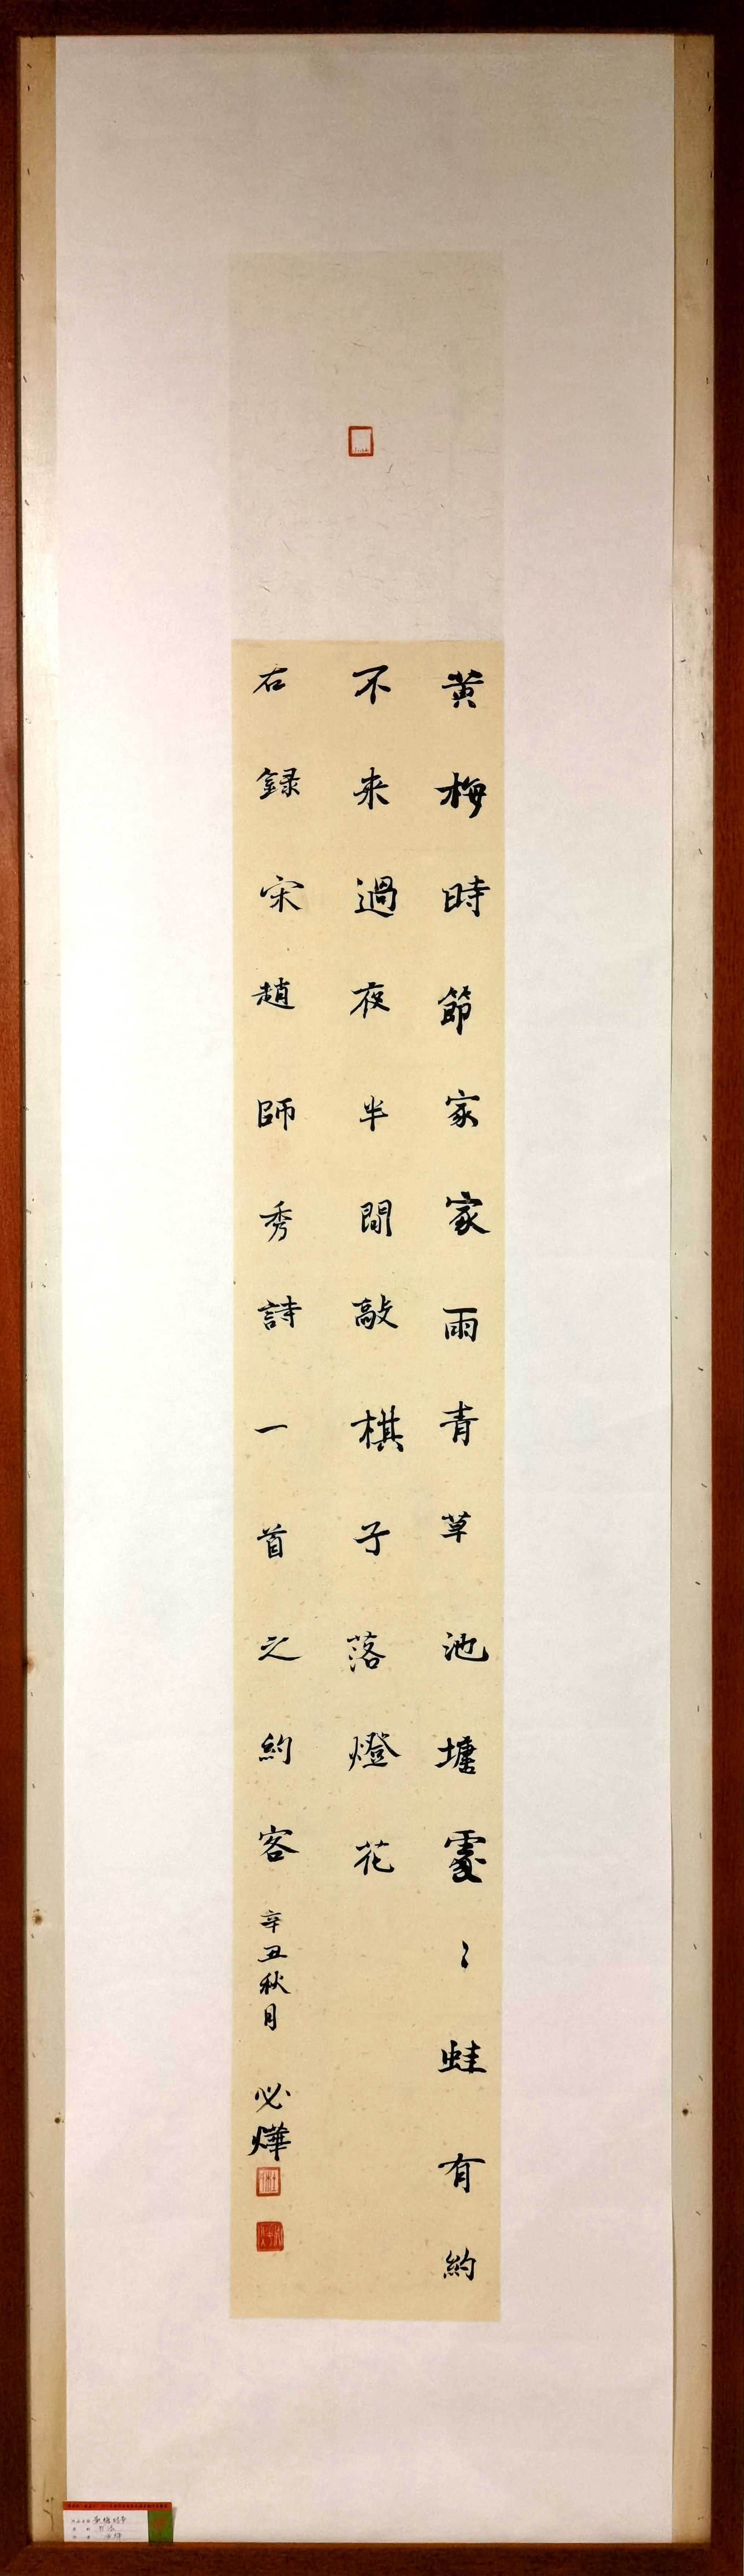 黄梅時節家家雨青草池塘處〻蛙有約
不来過夜半間敲棋子落燈花
右録宋趙師秀詩一首之約客 辛丑秋月 必燁